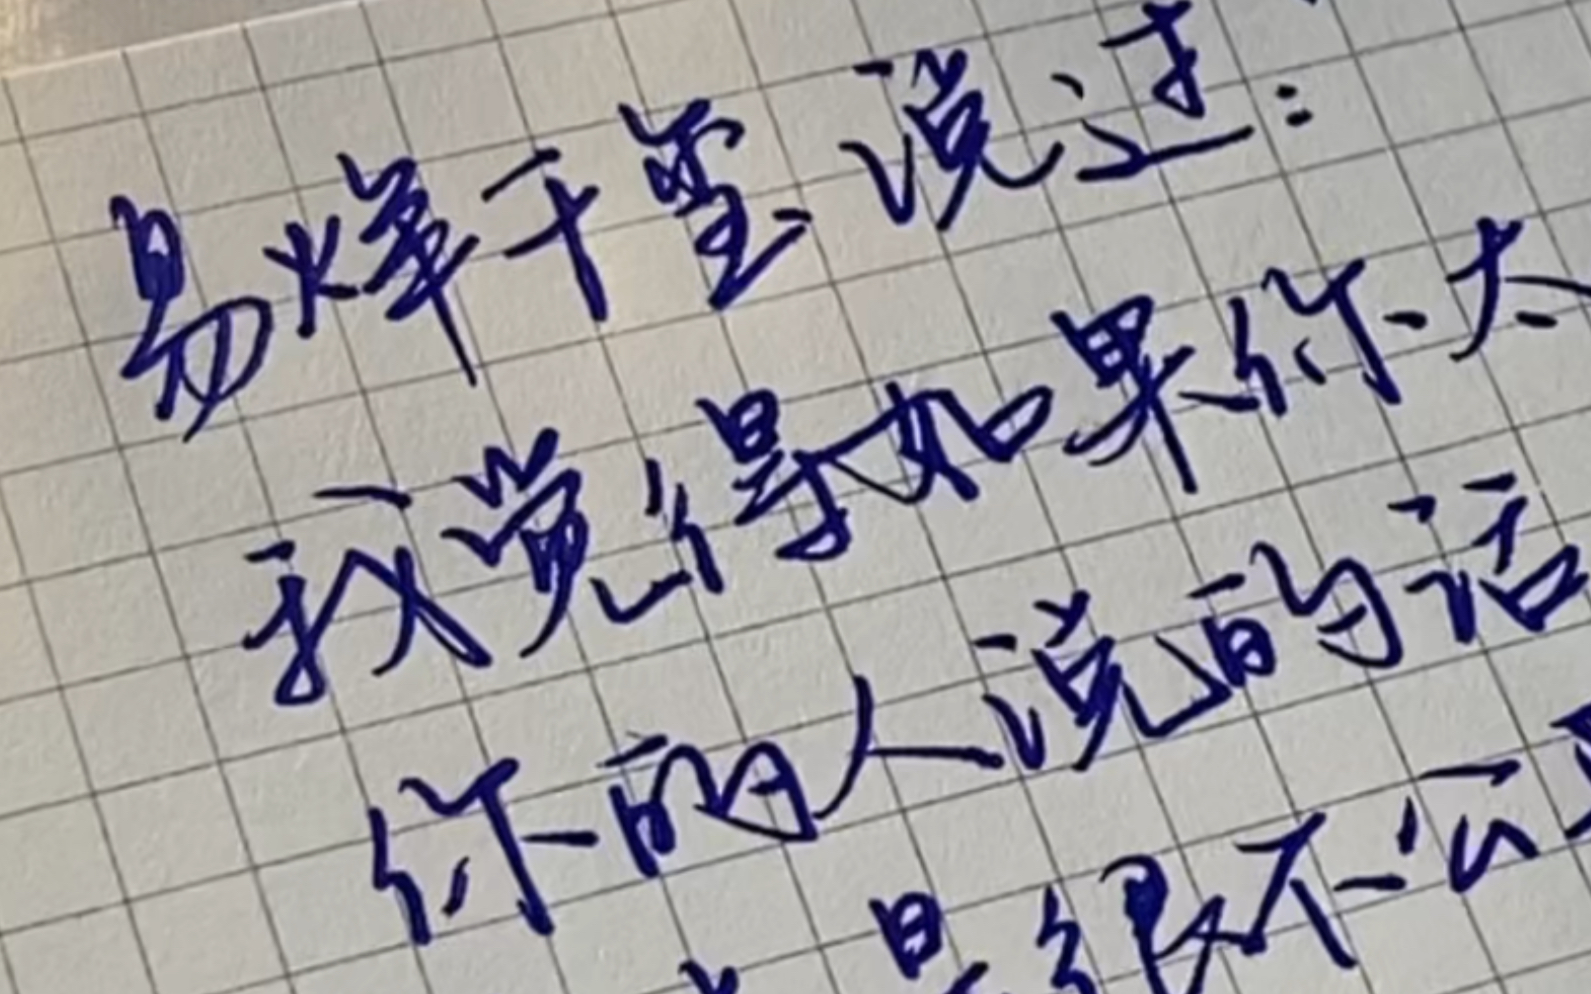 易烊千玺说过:
我觉得如果你太
你的人说的话
是很不公